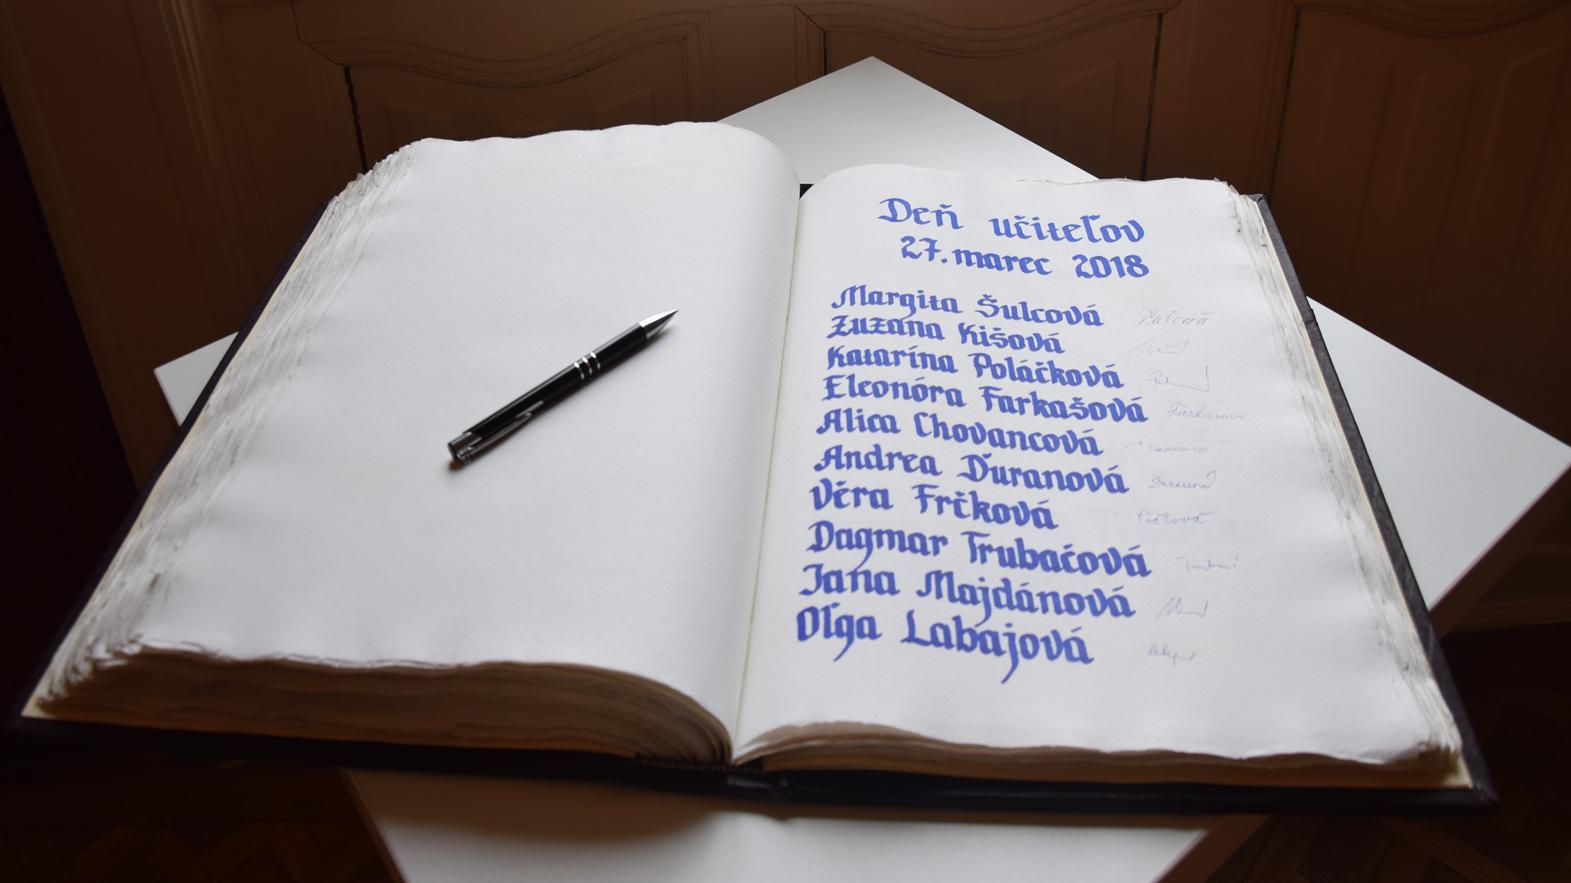 Deň učiteľov
27. marec 2018
Margita Šulcová
Zuzana Kišová
Katarína Poláčková
Eleonóra Farkašová
Alica Chovancová
Andrea Ďuranová
Věra Frčková
Dagmar Trubačová
Jana Majdánová
Oľga Labajová